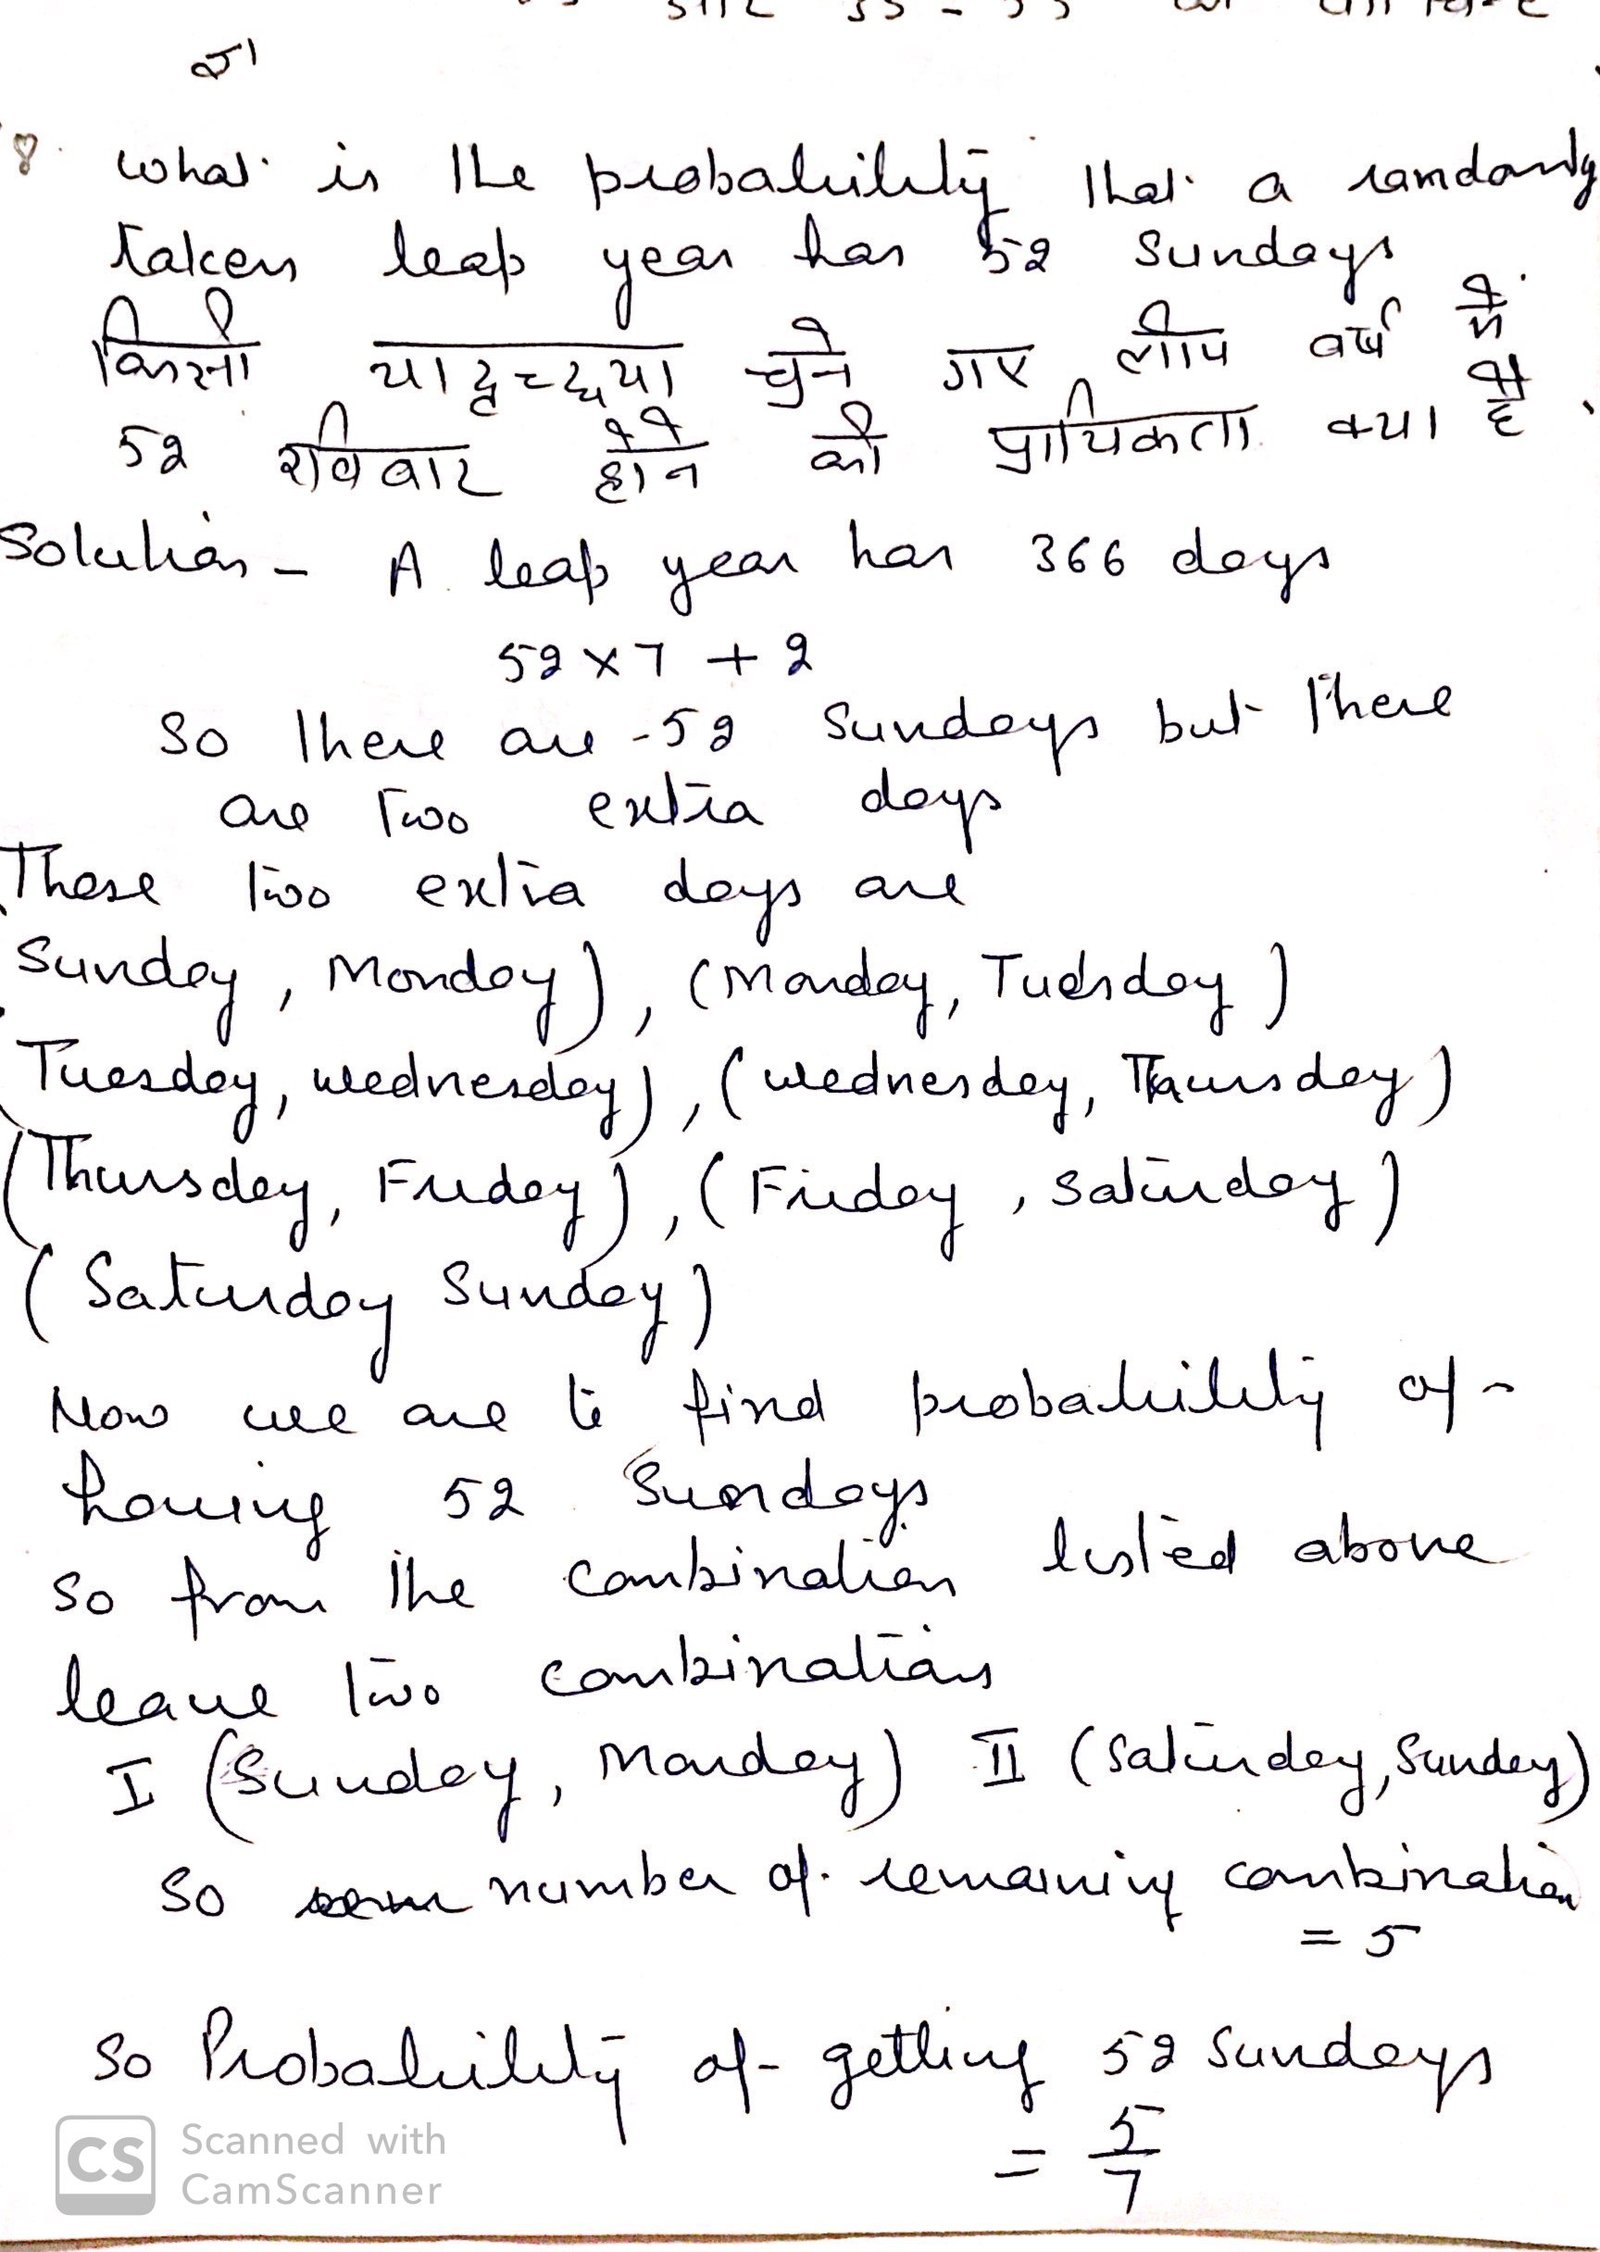 का
8. What is the probability that a randomly
taken leap year has 52 Sundays
किसी यादृच्छया चुने गए लीप वर्ष में
52 रविवार होने की प्रायिकता क्या है
Solution - A leap year has 366 days
52 × 7 + 2
So there are - 52 Sundays but there
are Two extra days
These two extra days are
Sunday, Monday), (Monday, Tuesday)
Tuesday, Wednesday), (Wednesday, Thursday)
(Thursday, Friday), (Friday, Saturday)
(Saturday Sunday)
Now we are to find probability of
having 52 Sundays
So from the combination listed above
leave two combinations
I (Sunday, Monday) II (Saturday, Sunday)
So number of remaining combination
= 5
So Probability of getting 52 Sundays
= 5/7
CS Scanned with
CamScanner